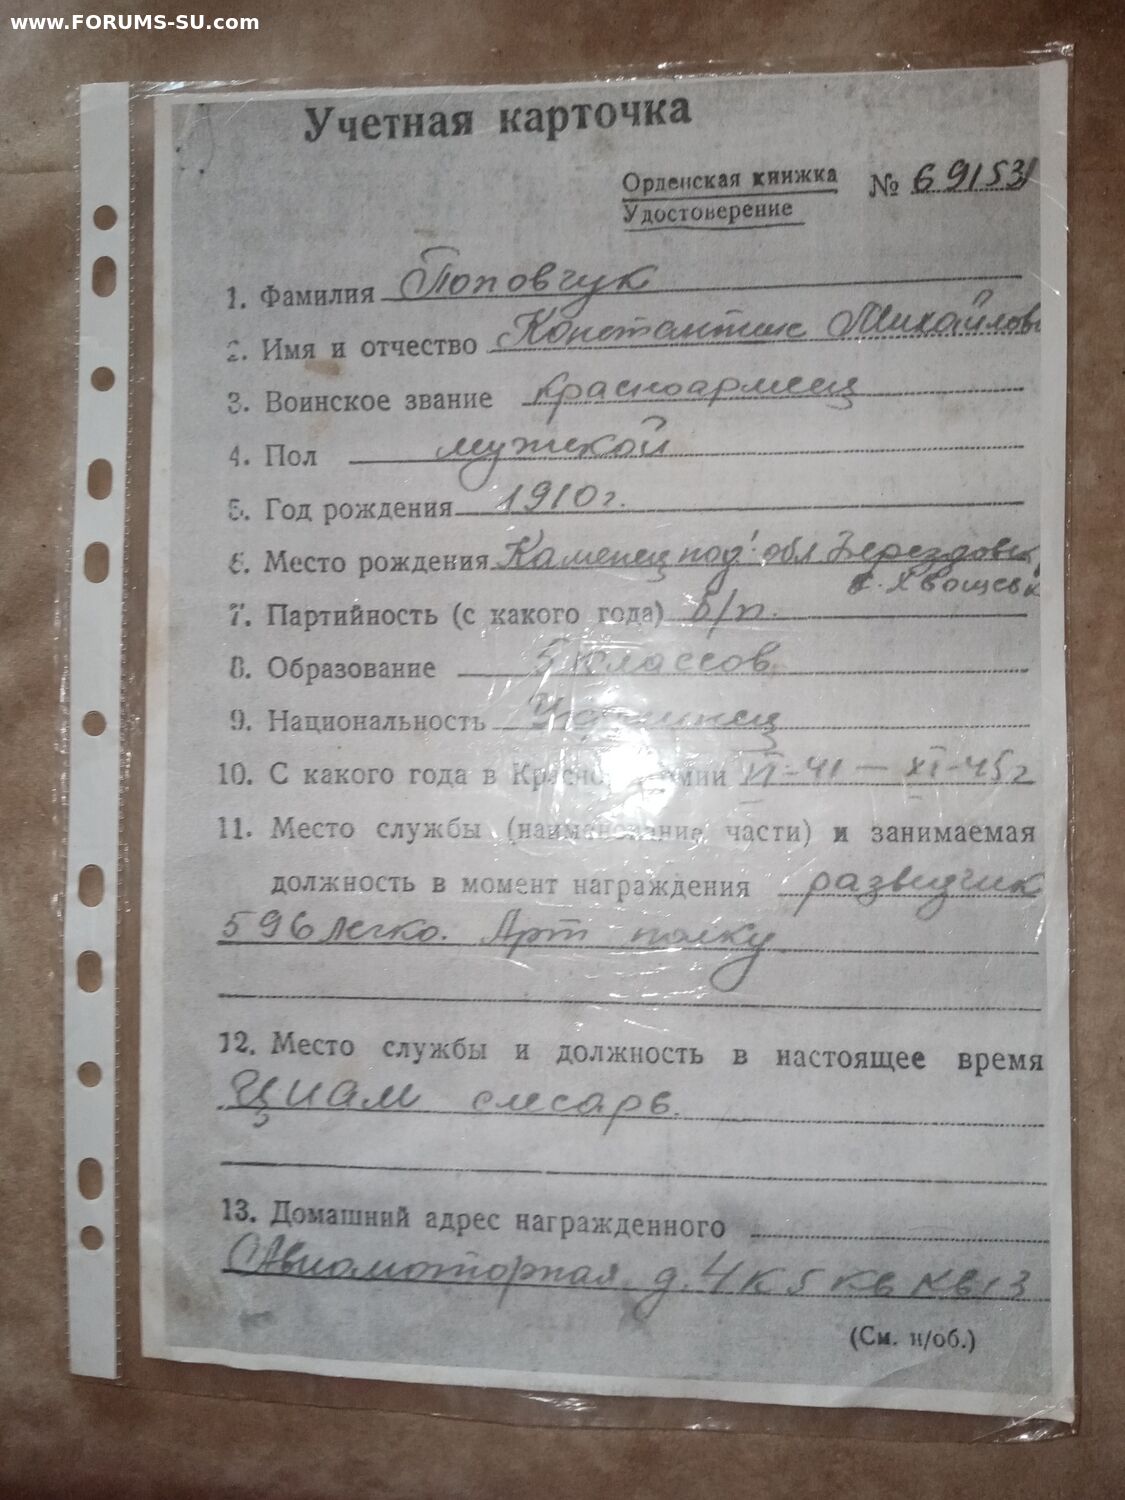 www.FORUMS-SU.com
Учетная карточка
Орденская книжка № 691531
Удостоверение
1. Фамилия Поповчук
2. Имя и отчество Константин Михайлов
3. Воинское звание красноармеец
4. Пол мужской
5. Год рождения 1910 г.
6. Место рождения Каменец под. обл. Берездовск
с. Хвощевк
7. Партийность (с какого года) б/п.
8. Образование 5 классов
9. Национальность Украинец
10. С какого года в Красной армии VI-41 — XI-45 г
11. Место службы (наименование части) и занимаемая
должность в момент награждения разведчик
596 легко. Арт полку
12. Место службы и должность в настоящее время
ЦИАМ слесарь.
13. Домашний адрес награжденного
Авиамоторная д. 4 к 5 кв 13
(См. н/об.)